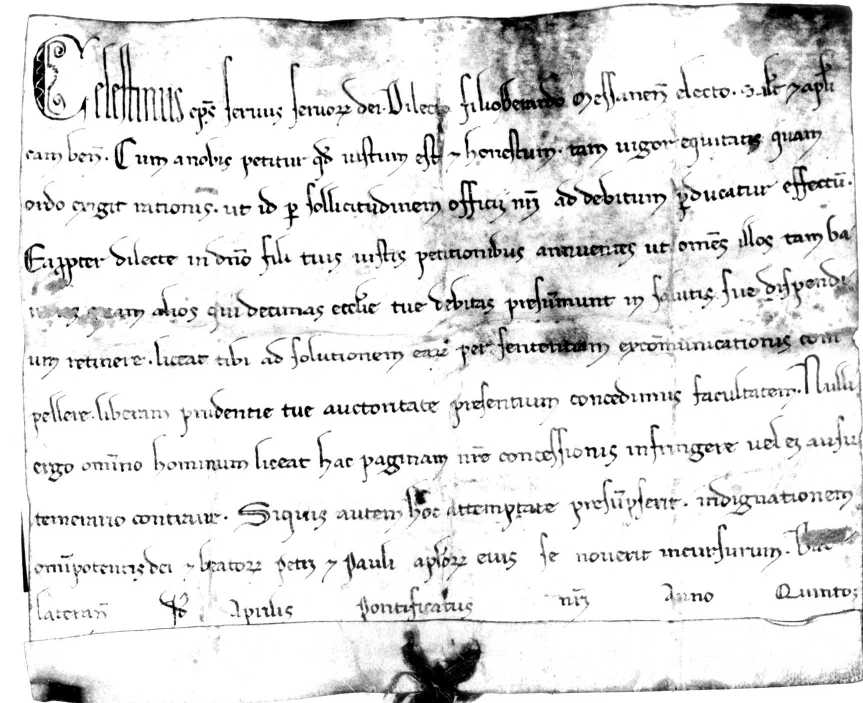 Celestinus ep̄s seruus seruorꝝ dei. Dilecto filio Berardo Messaneñ electo. salt̄ ⁊ apl̄i
cam beñ. Cum a nobis petitur qđ iustum est ⁊ honestum. tam uigor equitatis quam
ordo exigit rationis. ut id ꝑ sollicitudinem officij nr̄i ad debitum ꝑducatur effectū.
Eaꝓpter dilecte in dn̄o fili tuis iustis petitionibus annuentes ut omēs illos tam ba
quam alios qui decimas eccl̄ie tue debitas presūmunt in salutis sue dispendi
um retinere. liceat tibi ad solutionem earꝝ per sententiam excōmunicationis com
pellere. liberam prudentie tue auctoritate presentium concedimus facultatem. Nulli
ergo omnino hominum liceat hac paginam nr̄e concessionis infringere uel ei ausu
temerario contraire. Siquis autem hoc attemptare presūpserit. indignationem
omīpotentis dei ⁊ beatorꝝ Petri ⁊ Pauli apl̄orꝝ eius se nouerit incursurum. Dat̄
Laterañ Aprilis Pontificatus nr̄i Anno Quinto